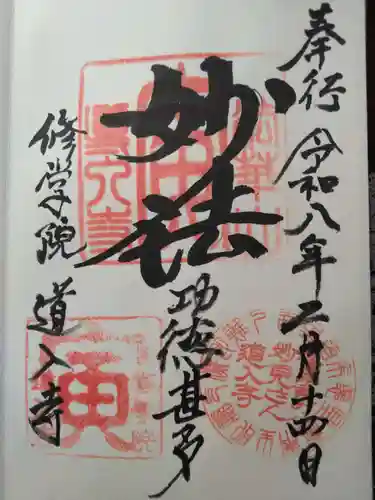 奉行 令和八年二月十四日
妙法
功徳甚多
修学院 道入寺
妙見さん
道入寺